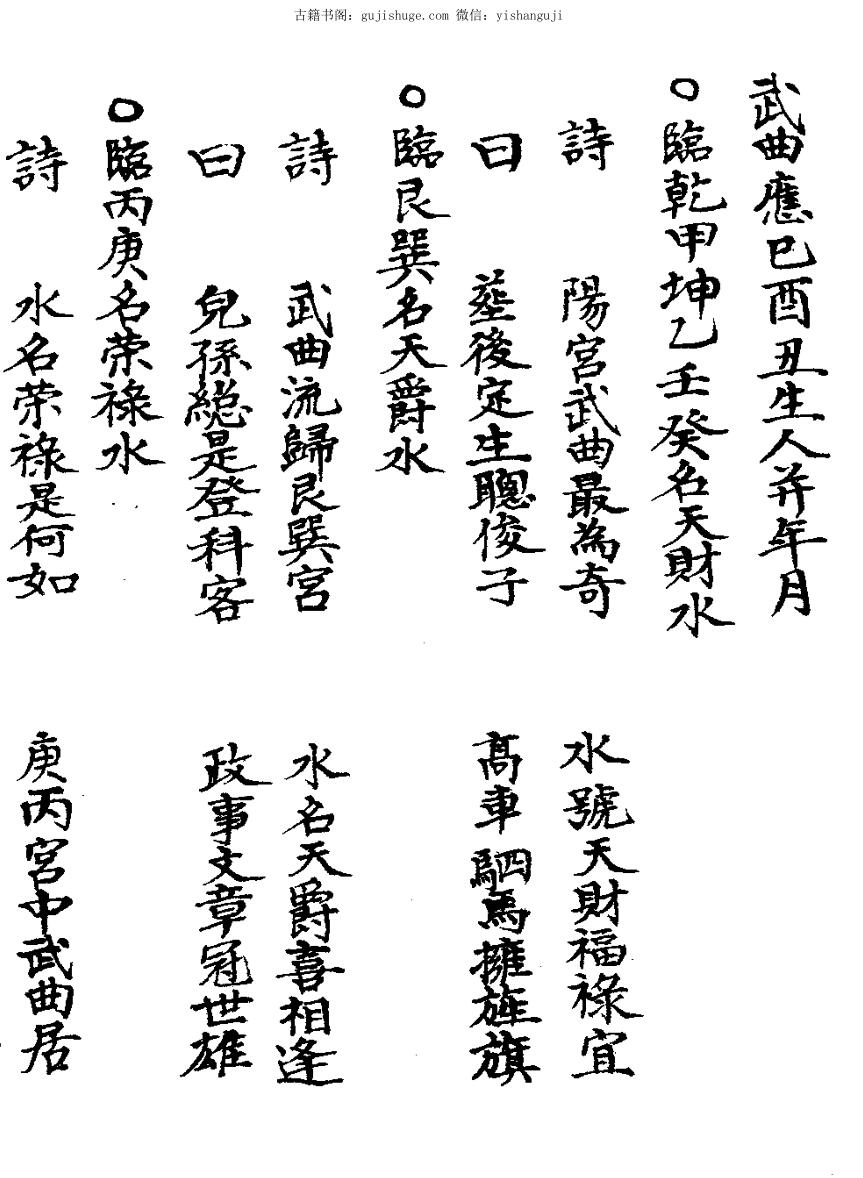 古籍书阁：gujishuge.com 微信：yishanguji
武曲應巳酉丑生人并年月
○臨乾甲坤乙壬癸名天財水
詩 陽宮武曲最為奇 水號天財福祿宜
曰 塟後定生聰俊子 髙車駟馬擁旌旗
○臨艮巽名天爵水
詩 武曲流歸艮巽宮 水名天爵喜相逢
曰 兒孫緫是登科客 政事文章冠世雄
○臨丙庚名荣祿水
詩 水名荣祿是何如 庚丙宮中武曲居